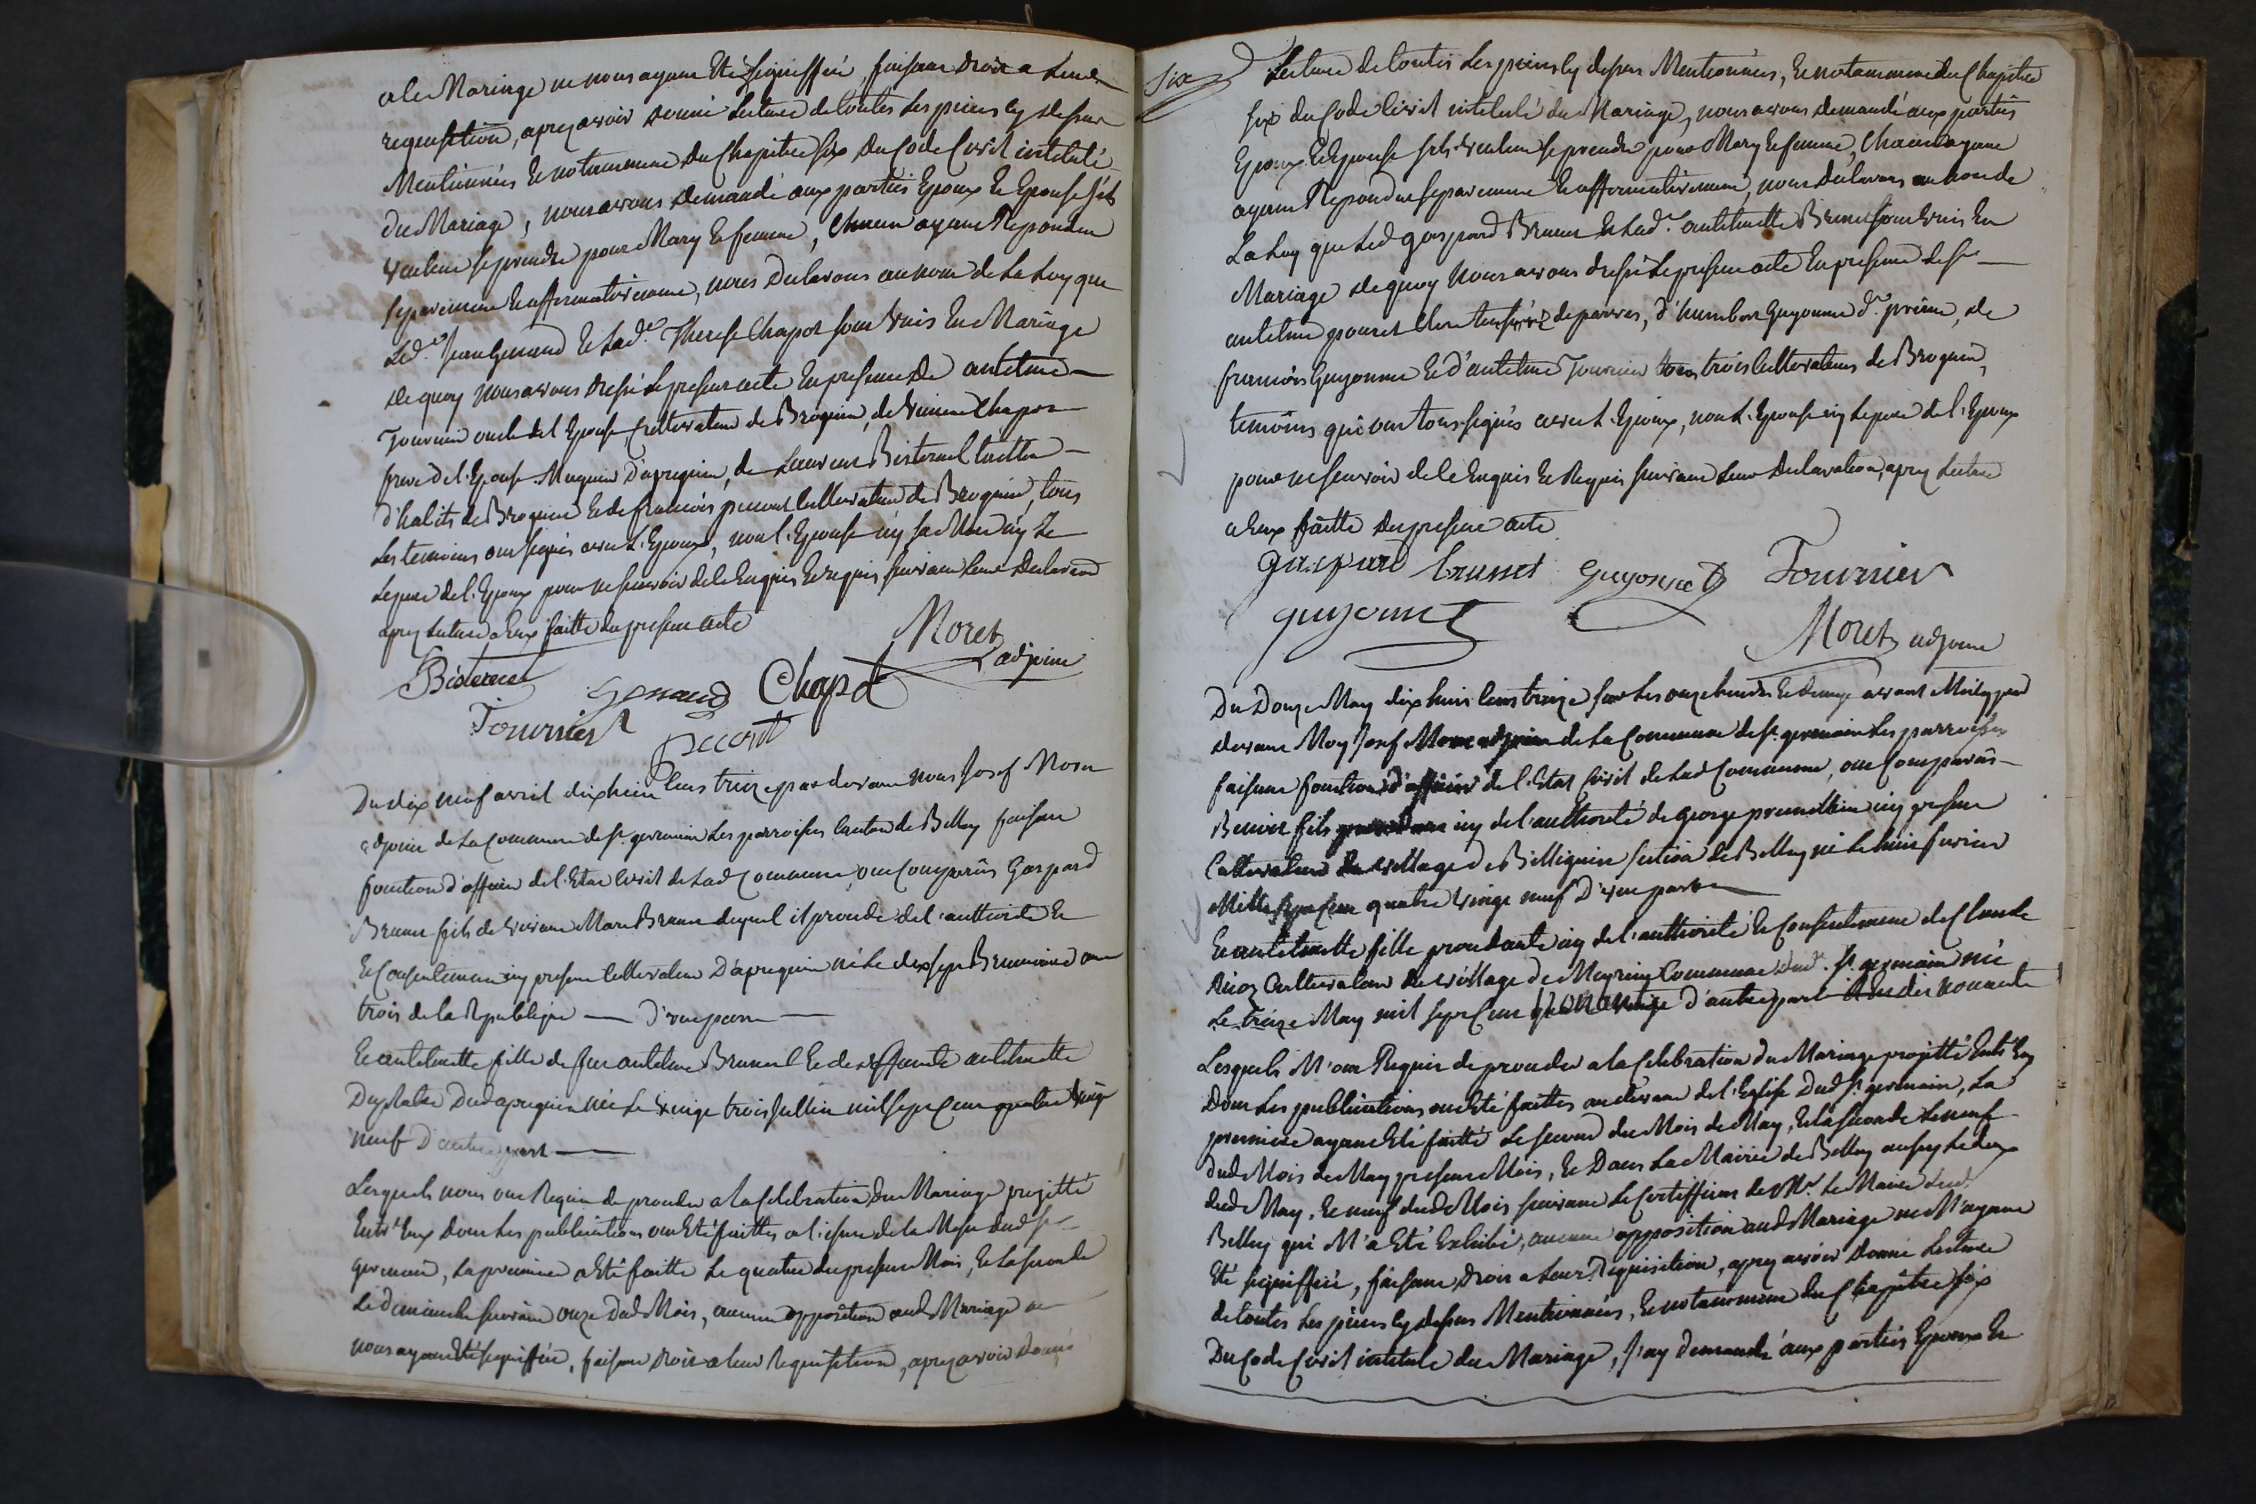 a le Mariage ne nous ayant Eté signiffiée, faisant droit a Leur
requisition, apres avoir donné Lecture de toutes Les pieces cy dessus
Mentionnées Et notamment du Chapitre six du Code Civil intitulé
du Mariage, nous avons demandé aux parties Epoux Et Epouse s'ils
veulent se prendre pour Mary Et femme, Chacun ayant Repondu
separement Et affirmativement, nous declarons au nom de La Loy que
Led. Jean Genand Et Lad. Therese Chapot sont Unis En Mariage
de quoy nous avons dressé Le present acte En presence De antelme
Fournier oncle de l'Epouse Cultivateur de Brognin, de Chapot
frere de l'Epouse d'apregnin, de Laurent Bisternel tailleur
d'habits de Brognin Et de francois peccout Cultivateur de Brognin, tous
Les temoins ont signés avec L'Epoux, non l'Epouse ny sa Mere ny Le
Le pere de l'Epoux pour ne scavoir de le Enquis Et requis suivant Leur declaration
apres Lecture a Eux faitte du present acte
Moret
adjoint
Bisternel Genand Chapot
Fournier peccout
Du dix neuf avril dix huit Cens treize par devant nous Josef Moret
adjoint de La Commune de St. germain Les parroisses Canton de Belley faisant
fonction d'officier de l'Etat Civil de Lad Commune, ont Comparûs Gaspard
Brunet fils de vivant Marc Brunet duquel il procede de l'authorité Et
Et Consentement icy present Cultivateur D'apregnin né Le dix sept Brumaire an
trois de la Republique — d'une part —
Et antelmette fille de feu antelme Brunet Et de deffunte antelmette
Duplatre Dud apregnin née Le vingt trois Juillet mil sept Cent quatre vingt
neuf D'autre part —
Lesquels nous ont Requis de proceder a la Celebration du Mariage projetté
Entr'Eux dont Les publications ont Eté faittes a l'issue de la Messe dud St.
germain, La premiere a Eté faitte Le quatre du present Mois, Et La seconde
Le dimanche suivant onze Dud Mois, aucune opposition aud Mariage ne
nous ayant Eté signiffiée, faisant droit a leur Requisition, apres avoir donné
Six
Lecture de toutes Les pieces cy dessus Mentionnées, Et notamment du Chapitre
six du Code Civil intitulé du Mariage, nous avons demandé aux parties
Epoux Et Epouse s'ils veulent se prendre pour Mary Et femme, Chacun ayant
ayant Repondu separement Et affirmativement, nous declarons au nom de
La Loy que Led gaspard Brunet Et Lad. antelmette Brunet sont Unis En
Mariage de quoy Nous avons dressé Le present acte En presence de Sr.
antelme de parves, d'humbert Guyonnet d. , de
francois Guyonnet Et d'antelme Fournier tous trois Cultivateurs de Brognin,
temoins qui ont tous signés avec L'Epoux, non L'Epouse ny Le pere de l'Epoux
pour ne scavoir de le Enquis Et Requis suivant Leur declaration, apres Lecture
a Eux faitte du present acte
gaspard brunet guyonnet Fournier
guyonnet
Moret adjoint
Du Douze May dix huit Cens treize sur Les onze heures Et demye avant Midy par
devant Moy Josef Moret adjoint de La Commune de St. germain Les parroisses
faisant fonction d'officier de l'Etat Civil de Lad Commune, ont Comparûs
Benoit fils icy de l'authorité de george icy present
Cultivateur du village de Billignin section de Belley né Le huit fevrier
Mille sept Cent quatre vingt neuf D'une part
Et antelmette fille procedante icy de l'authorité Et Consentement de Claude
Cultivateur du village de Meyrin Commune dud. St. germain née
Le Treize May mil sept Cent nonante d'autre part
Lesquels M'ont Requis de proceder a la Celebration du Mariage projetté Entr'Eux
Dont Les publications ont Eté faittes au devant de l'Eglise Dud St. germain, La
premiere ayant Eté faitte Le second du Mois de May, Et La seconde Le neuf
dud Mois de May present Mois, Et Dans La Mairie de Belley aussy Le deux
dud May, Et neuf dud Mois suivant Le Certifficat de Mr. Le Maire dud.
Belley qui M'a Eté Exhibé, aucune opposition aud Mariage ne M'ayant
Eté signiffiée, faisant Droit a Leur Requisition, apres avoir donné Lecture
de toutes Les pieces cy dessus Mentionnées, Et notamment du Chapitre six
Du Code Civil intitulé du Mariage, J'ay demandé aux parties Epoux Et